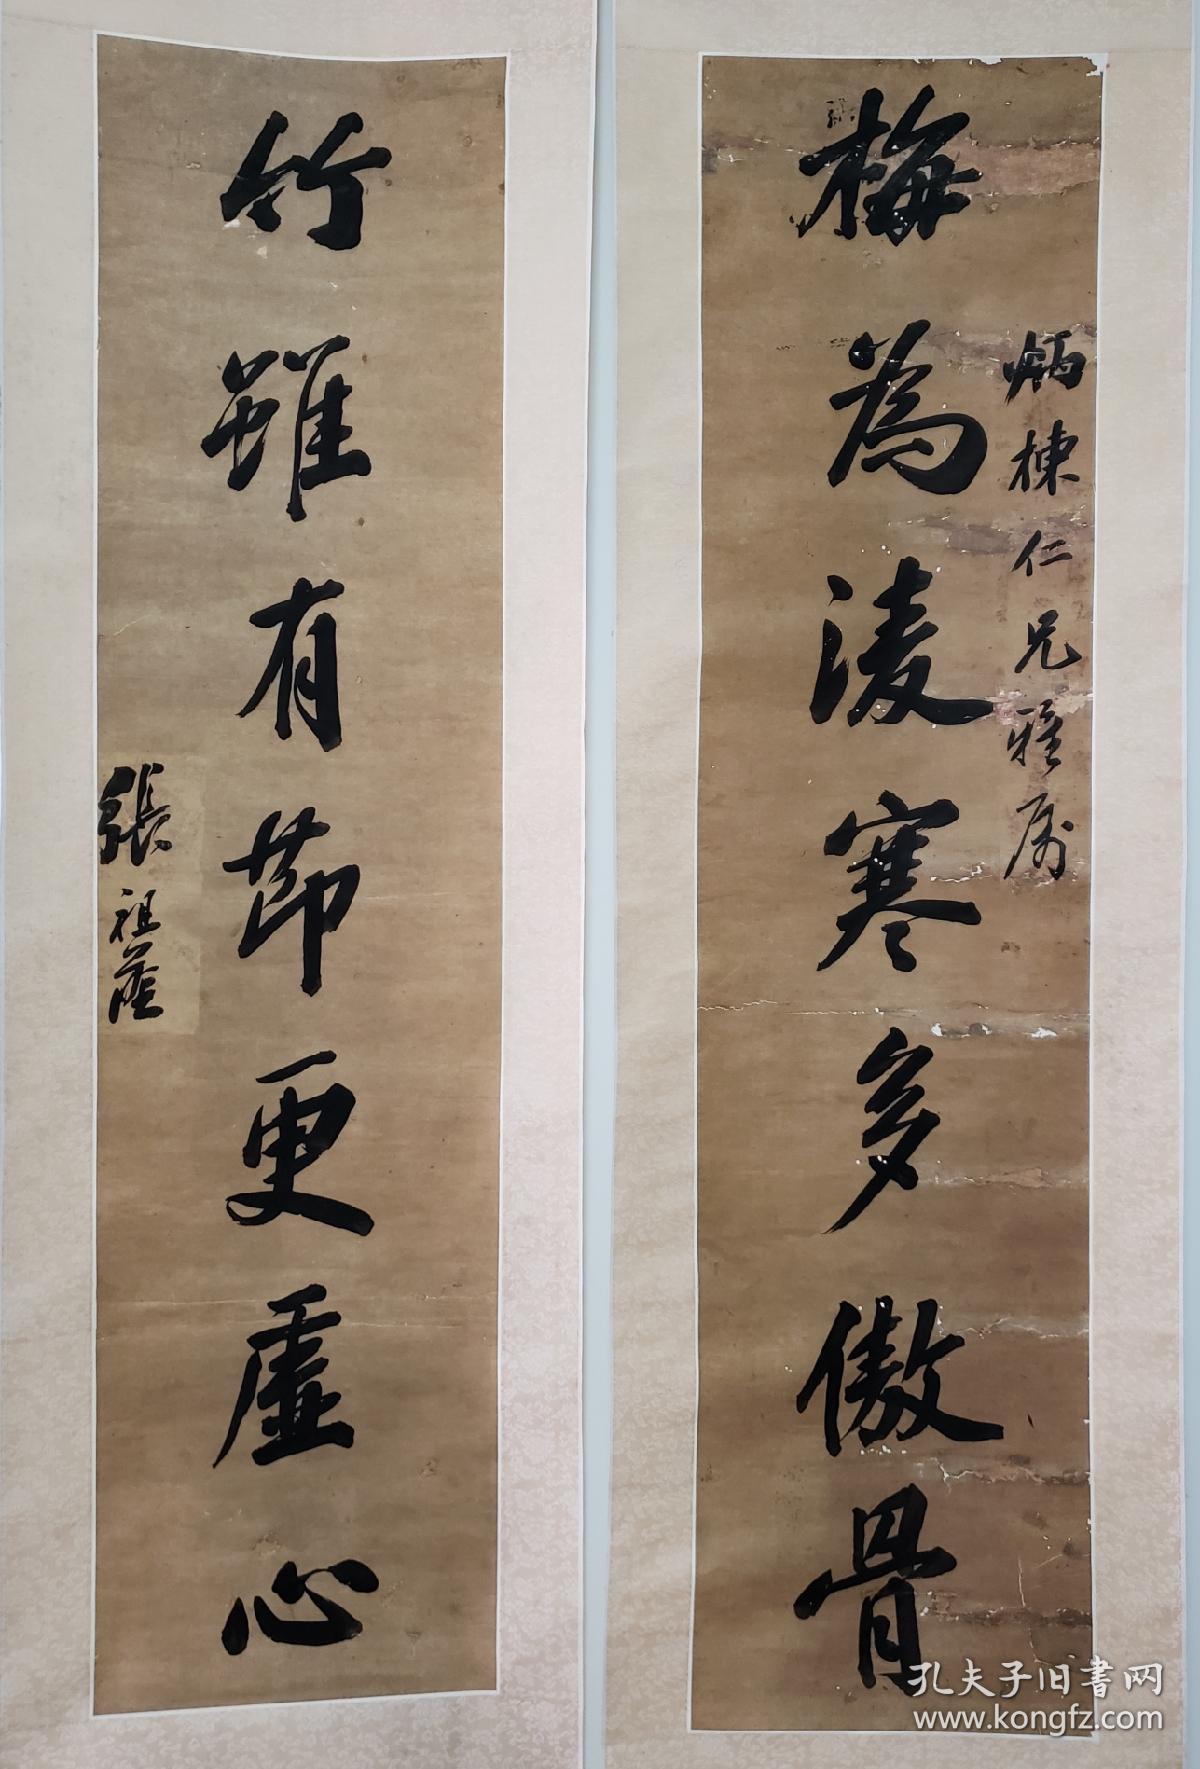 梅為淩寒多傲骨
炳棟仁兄雅屬
竹雖有節更虛心
張祖蔭
孔夫子旧書网
www.kongfz.com